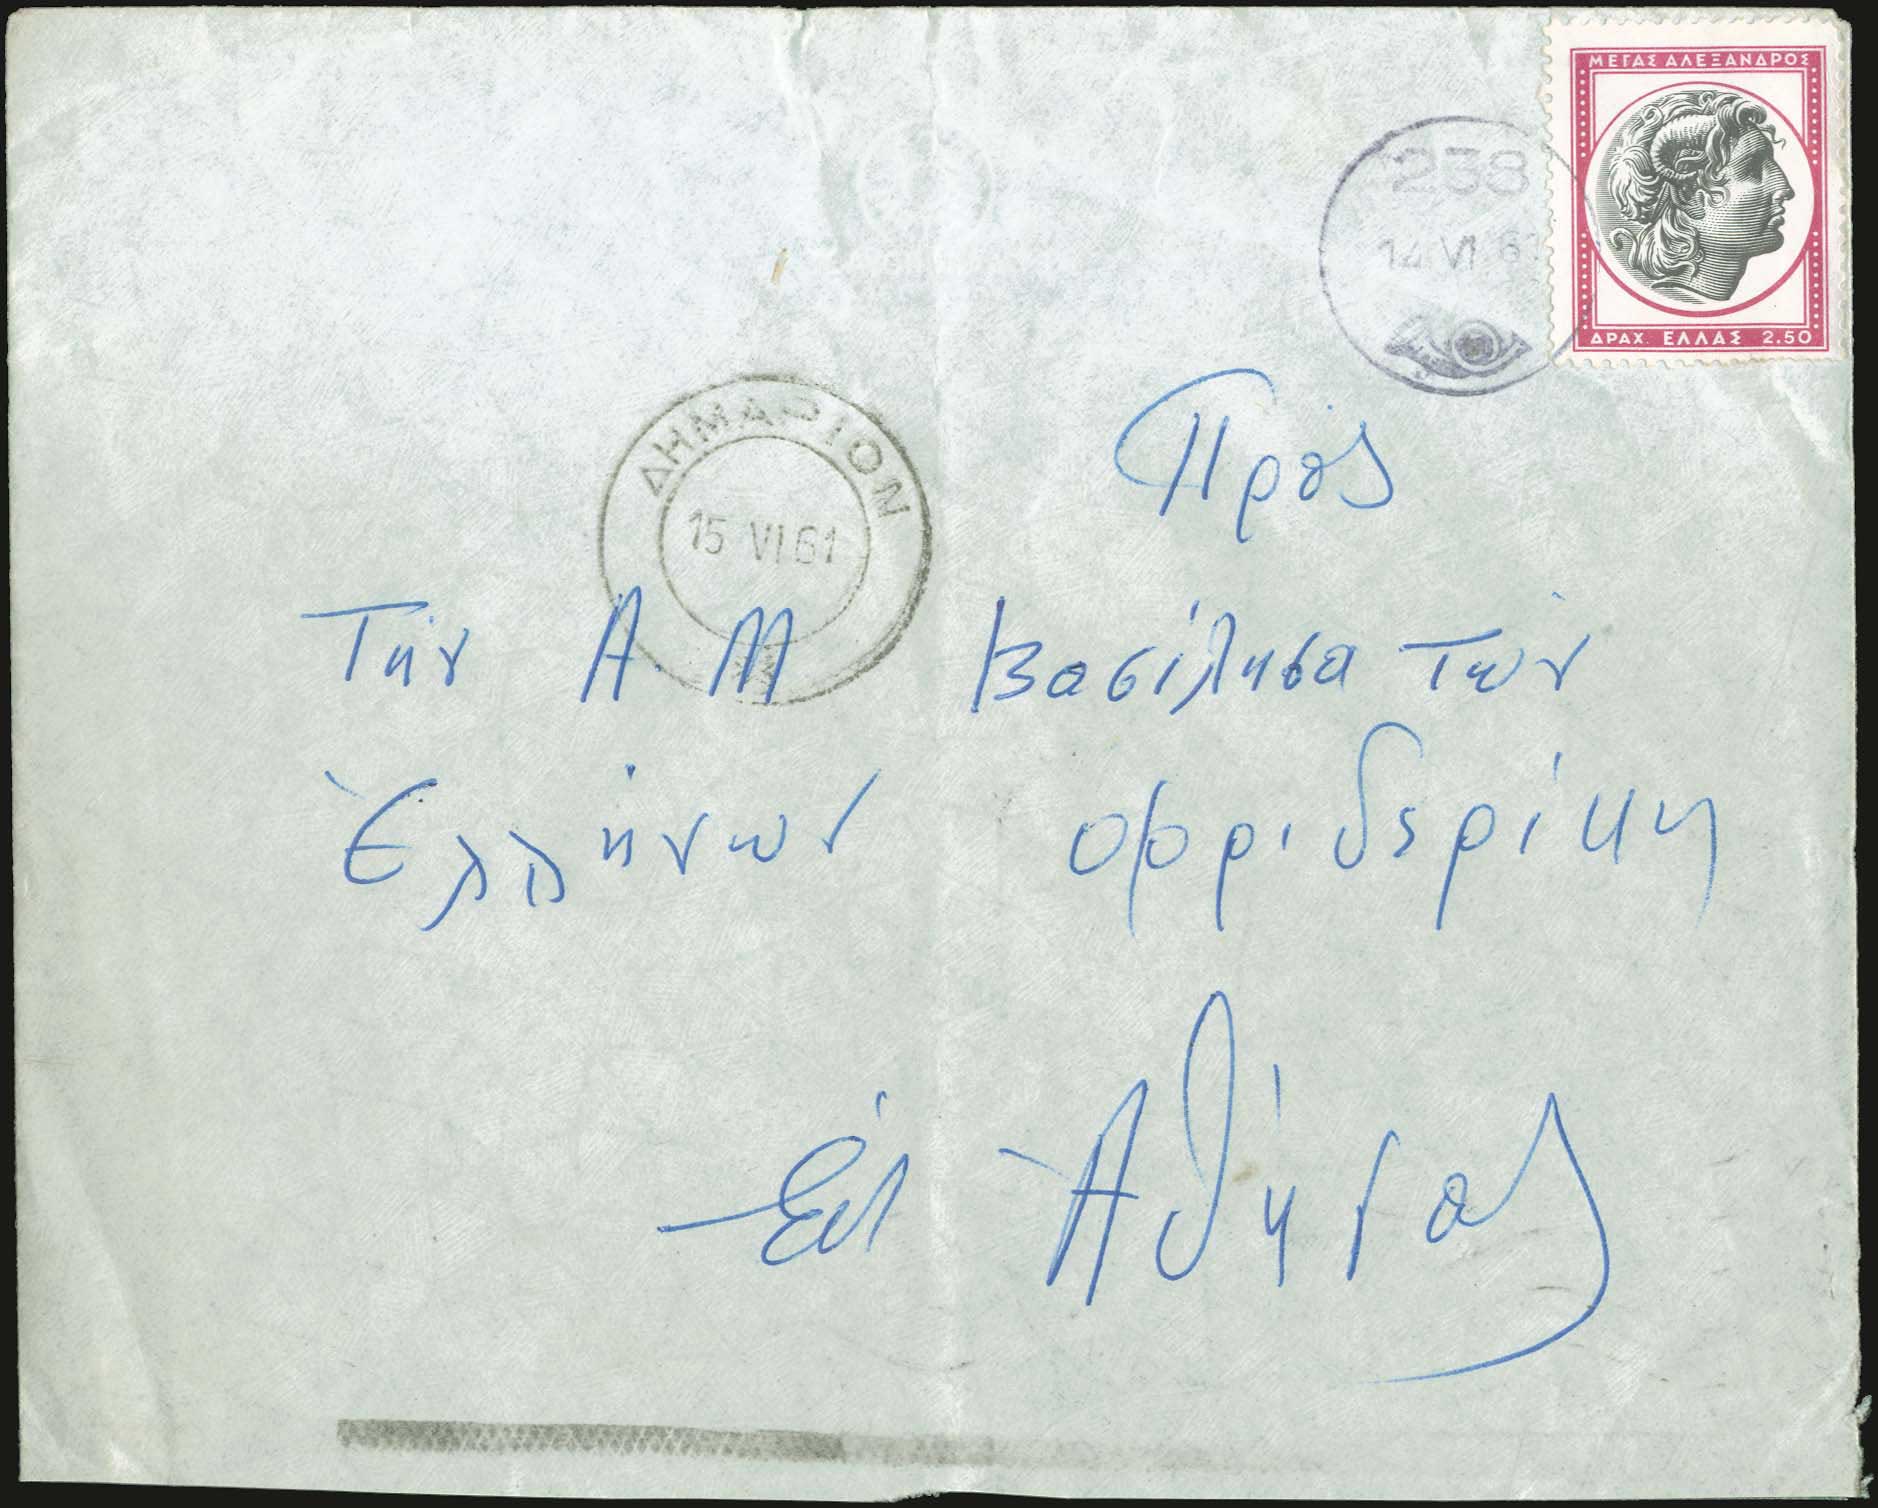 ΜΕΓΑΣ ΑΛΕΞΑΝΔΡΟΣ
ΔΡΑΧ. ΕΛΛΑΣ 2.50
238
14 VI 61
ΔΗΜΑΡΙΟΝ
15 VI 61
Πρὸς
Τήν Α. Μ Βασίλησα τών
Ἑλλήνων Φριδερίκη
Εἰς Ἀθήνας